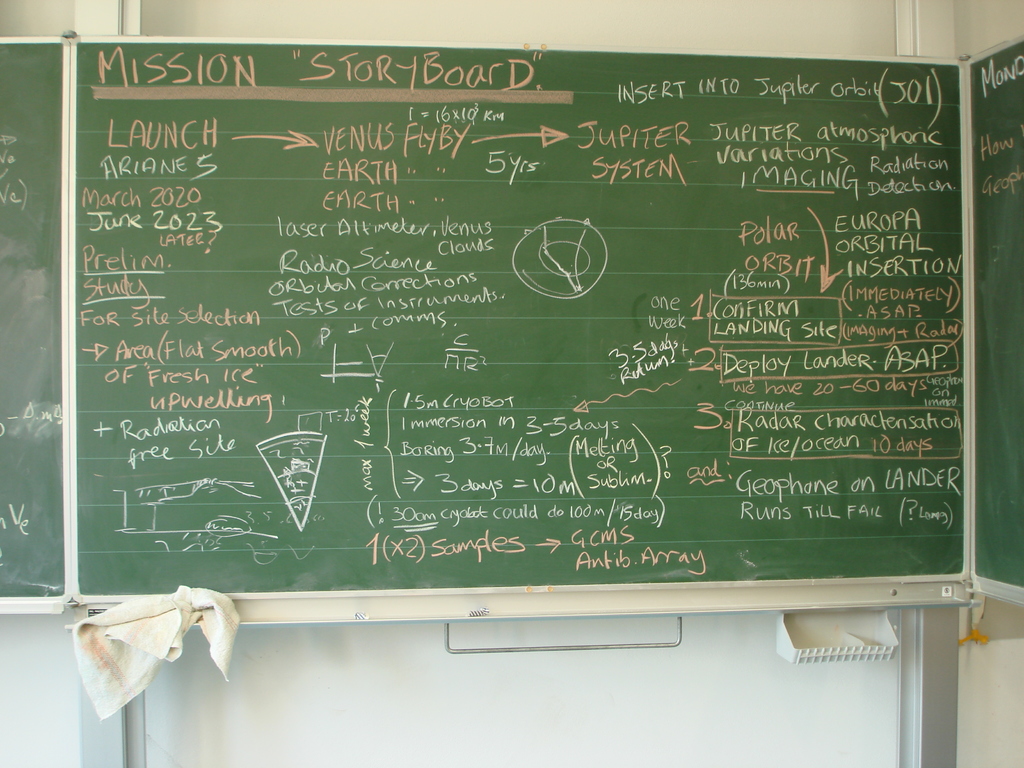 MISSION "STORYBOARD"
INSERT INTO Jupiter orbit (JOI)
LAUNCH → VENUS FLYBY → JUPITER
ARIANE 5
EARTH " "
5yrs
SYSTEM
EARTH " "
March 2020
June 2023
LATER?
Prelim.
Study
FOR Site Selection
→ Area (Flat Smooth)
OF "Fresh Ice"
upwelling!
+ Radiation
free Site
laser Altimeter, Venus
Clouds
Radio Science
orbital corrections
Tests of Instruments.
+ comms.
P
T=20
max 1 week
1.5m CRYOBOT
Immersion in 3-5 days
Boring 3-7m/day.
⇒ 3 days = 10m
(Melting
OR
Sublim.)?
(! 30cm cryobot could do 100m/15day)
1(x2) Samples → GCMS
Antib. Array
JUPITER atmospheric
variations
Radiation
IMAGING
Detection.
POLAR
ORBIT
(136min)
EUROPA
ORBITAL
INSERTION
(IMMEDIATELY)
ASAP
(imaging + Radar)
one
week
1. CONFIRM
LANDING Site
3.5 days +
Return!
2. Deploy Lander. ASAP.
we have 20-60 days
CONTINUE
3. Radar characterisation
OF ice/ocean 10 days
and
Geophone on LANDER
RUNS TILL FAIL
MOND
How
Geoph